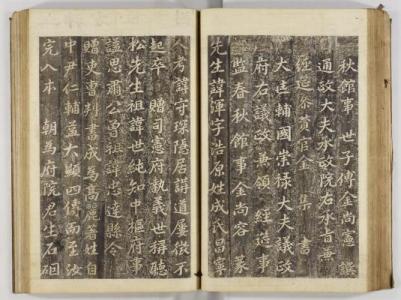 秋館事 世子傅金尚憲 撰
通政大夫承政院右承旨兼
經筵參贊官金 集 書
大匡輔國崇祿大夫議政
府右議政兼領 經筵事
監春秋館事金尚容篆
先生諱渾字浩原姓成氏昌寧
人考諱守琛隱居講道屢徵不
起卒 贈司憲府執義世稱聽
松先生祖諱世純知中樞府事
諡思肅公曾祖諱忠達縣令
贈吏曹判書成為高麗著姓自
中尹仁輔蓋大顯四傳而至汝
完入本 朝為府院君生石𥐟